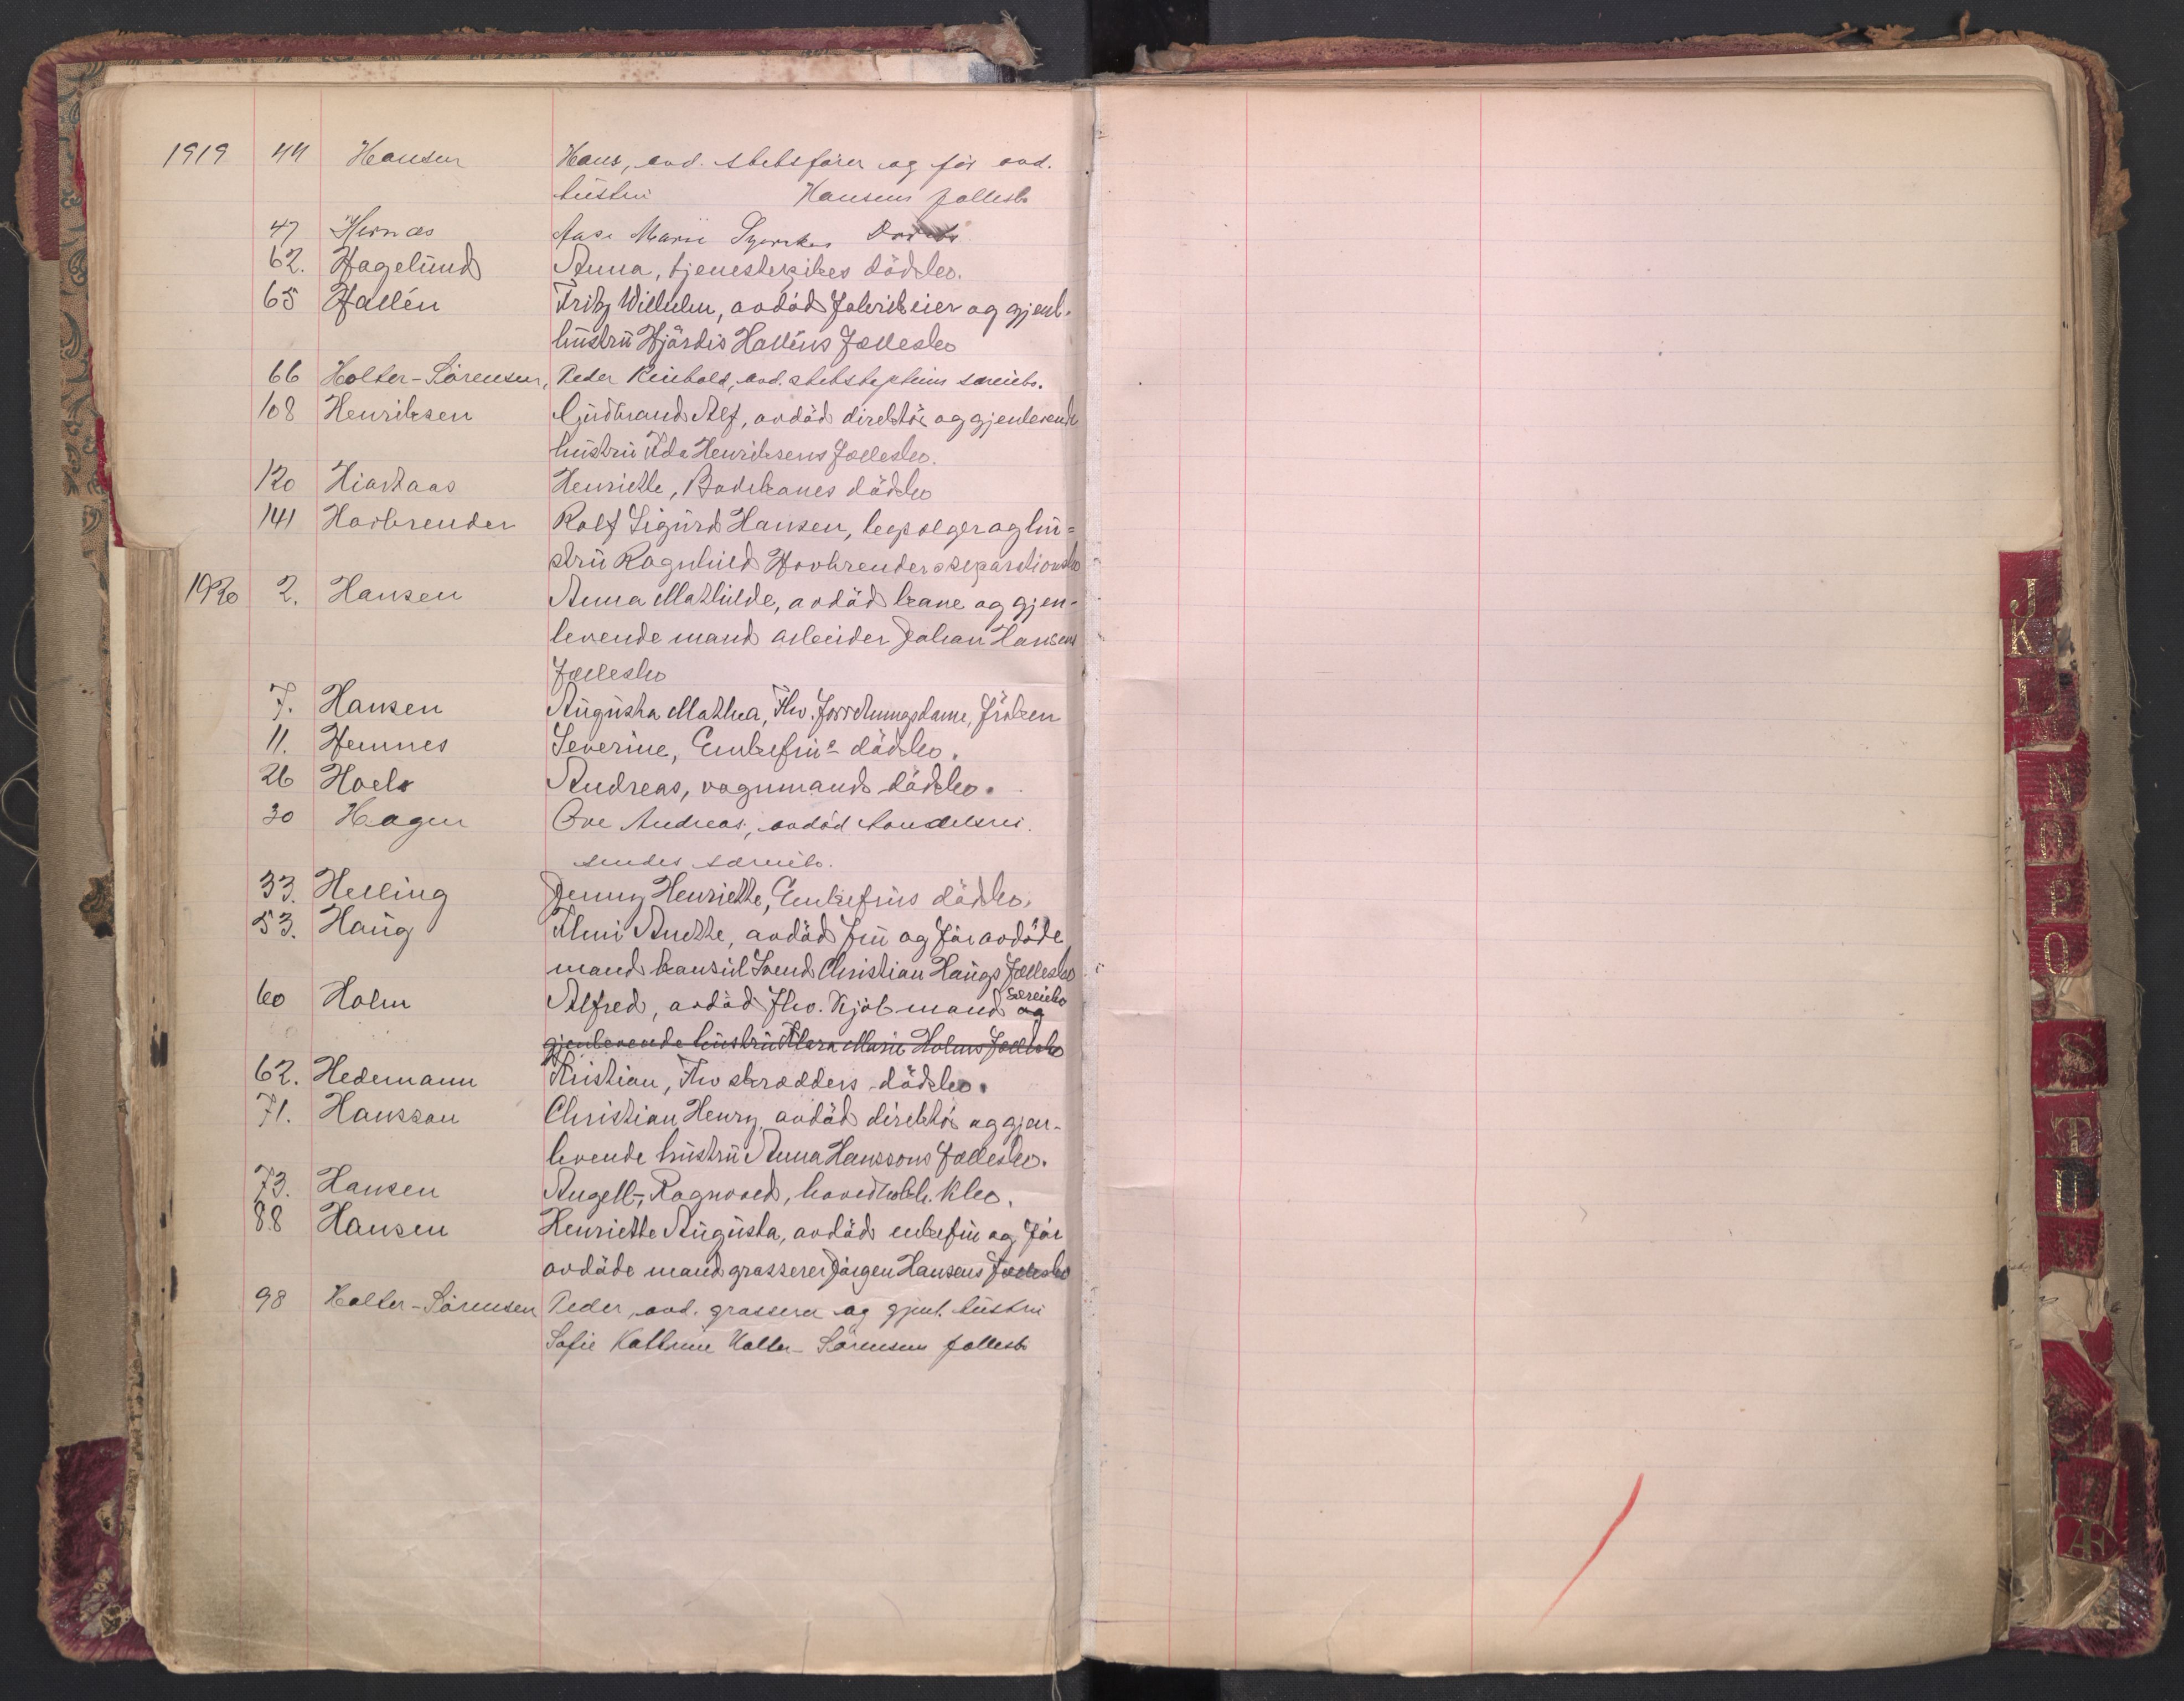 1919 44 Hansen Hans, avd. skibsfører og før avd.
hustru Hansens fællesb
47 Hernæs Aase Marie
62. Hagelund Anna, tjenestepikes dödsbo.
65 Hallén Fritz Wilhelm, avdöd fabrikeier og gjenl.
hustru Hjördis Halléns Fællesbo
66 Holter-Sörensen, Peder Reinhold, avd. skibskapteins særeiebo.
108 Henriksen Gudbrand Alf, avdöd direktör og gjenlevende
hustru Ida Henriksens Fællesbo.
120 Hiorthaas Henriette, Badekones dödsbo
141 Hovbrender Rolf Sigurd Hansen, og hu-
stru Ragnhild Hovbrenders separationsbo
1920 2. Hansen Anna Mathilde, avdöd kone og gjen-
levende mand arbeider Johan Hansens
Fællesbo
7. Hansen Augusta Mathea, Fhv. Forretningsdame, Fröken
11. Hemnes Severine, Enkefru's dödsbo.
26 Hoel Andreas, vognmands dödsbo.
30 Hagen Ove Andreas, avdöd handelsrei-
sendes særeiebo.
33. Helling Jenny Henriette, Enkefrus dödsbo.
53. Haug Thini Anette, avdöd fru og för avdöde
mand konsul Svend Christian Haugs Fællesbo
60 Holm Alfred, avdöd fhv. Kjöbmand og særeiebo
gjenlevende hustru Klara Marie Holms Fællesbo
62. Hedemann Kristian, Fhv skrædders dödsbo.
71. Hansson Christian Henry, avdöd direktör og gjen-
levende hustru Anna Hanssons Fællesbo.
73. Hansen Angell-, Ragnvald, hovedbokh. Kbo.
88 Hansen Henriette Augusta, avdöd enkefru og för
avdöde mand grosserer Jörgen Hansens Fællesbo
98 Holter-Sörensen Peder, avd. grosserer og gjenl. hustru
Sofie Kathrine Holter-Sörensens fællesb
J
K
L
N
O
P
Q
S
T
U
V
Æ